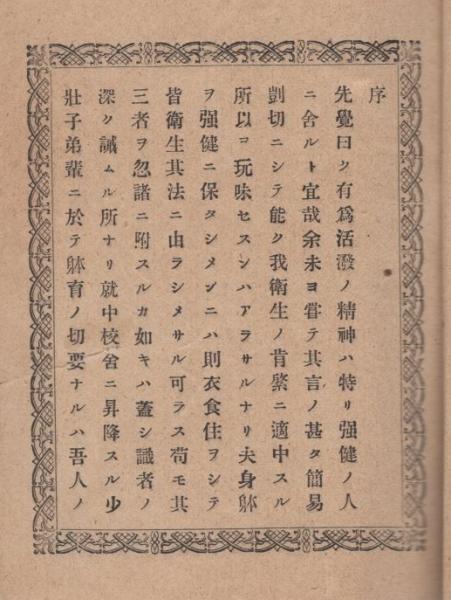 序
先覺曰ク有爲活潑ノ精神ハ特リ强健ノ人
ニ舍ルト宜哉余未ヨ嘗テ其言ノ甚タ簡易
剴切ニシテ能ク我衛生ノ肯綮ニ適中スル
所以コ玩味セスンハアラサルナリ夫身躰
ヲ强健ニ保タシメンニハ則衣食住ヲシテ
皆衛生其法ニ由ラシメサル可ラス苟モ其
三者ヲ忽諸ニ附スルカ如キハ蓋シ識者ノ
深ク誡ムル所ナリ就中校舍ニ昇降スル少
壯子弟輩ニ於テ躰育ノ切要ナルハ吾人ノ